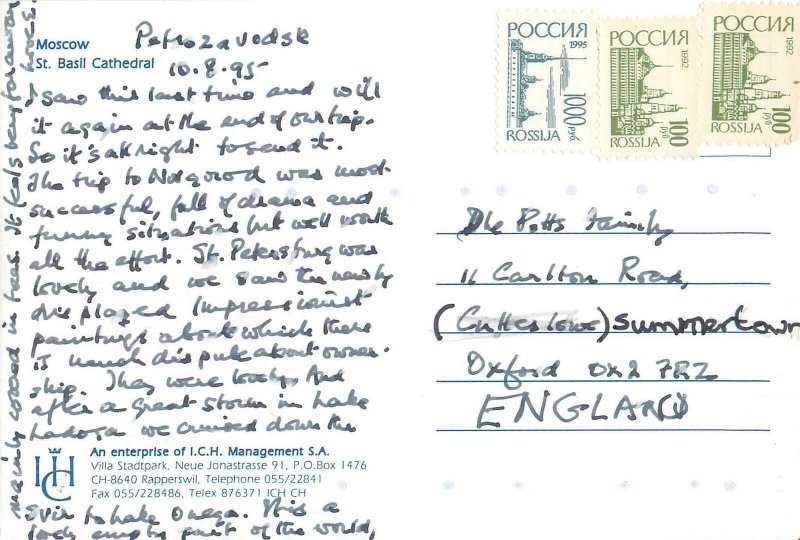 Moscow
St. Basil Cathedral
Petrozavodsk
10.8.95
I saw this last time and will
it again at the end of our trip.
So it's alright to send it.
The trip to Novgorod was most
successful, full of drama and
funny situations but well worth
all the effort. St. Petersburg was
lovely and we saw the newly
displayed Impressionist
paintings about which there
is much dispute about owner-
ship. They were lovely. And
after a great storm in Lake
Ladoga we cruised down the
An enterprise of I.C.H. Management S.A.
Villa Stadtpark, Neue Jonastrasse 91, P.O.Box 1476
CH-8640 Rapperswil, Telephone 055/22841
Fax 055/228486, Telex 876371 ICH CH
ICH
Svir to Lake Onega. This is a
empty part of the world,
mainly covered in trees. It feels being far away
РОССИЯ
1995
1000 руб
ROSSIJA
РОССИЯ
1992
100 руб
ROSSIJA
РОССИЯ
1992
100 руб
ROSSIJA
The Potts Family
11 Carlton Road,
(Cutteslowe) Summertown
Oxford OX2 7RZ
ENGLAND